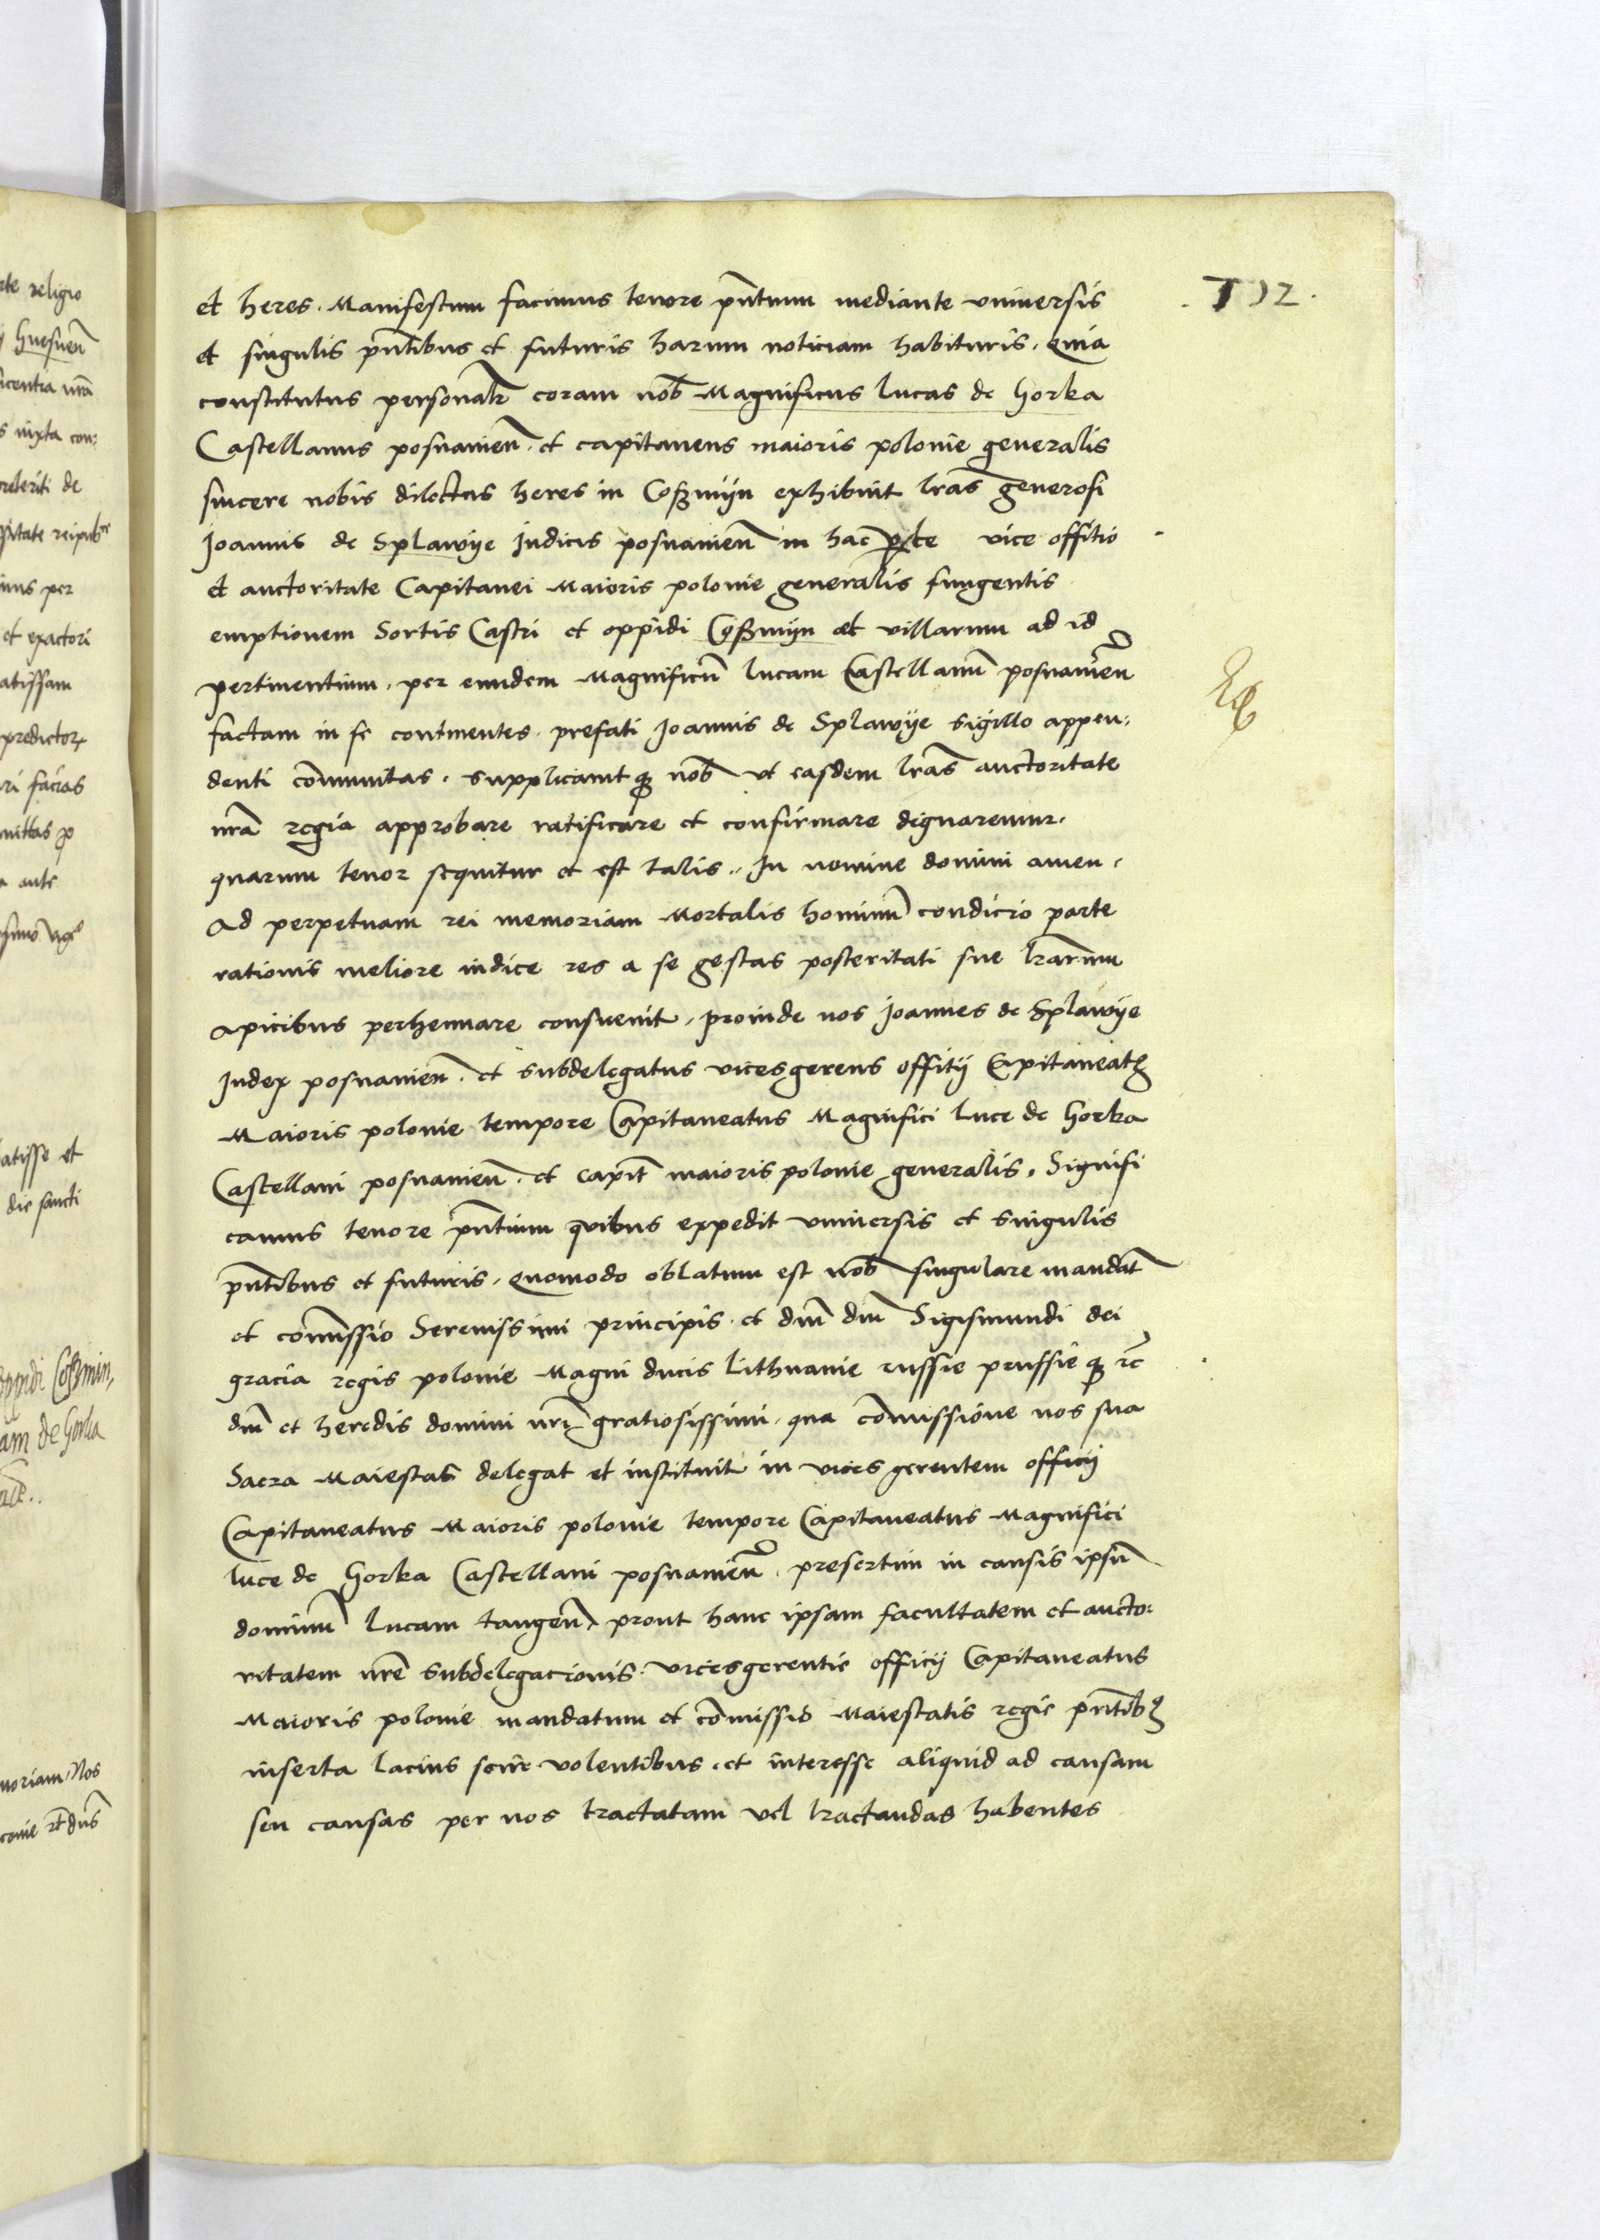 et heres. Manifestum facimus tenore pñtium mediante vniversis
et singulis pñtibus et futuris harum noticiam habituris. Quia
constitutus personalr coram nob Magnificus Lucas de Gorka
Castellanus posnanien. et capitaneus maioris polonie generalis
sincere nobis dilectus heres in Coßmijn exhibuit lras generosi
Joannis de Splawye Judicis posnanien in hac pte vice offitio
et auctoritate Capitanei Maioris polonie generalis fungentis
emptionem Sortis Castri et oppidi Coßmijn et villarum ad id
pertinentium, per eundem Magnificũ lucam Castellanũ posnanien
factam in se continentes. prefati Joannis de Splawye sigillo appen:
denti cõmunitas. supplicauitq nob vt easdem lras auctoritate
nrã regia approbare ratificare et confirmare dignaremur.
quarum tenor sequitur et est talis. In nomine domini amen.
Ad perpetuam rei memoriam Mortalis hominũ condicio parte
rationis meliore iudice res a se gestas posteritati sue lrarum
apicibus perhennare consueuit. proinde nos Joannes de Splawye
Judex posnanien. et subdelegatus vicesgerens offitij Capitaneatq
Maioris polonie tempore Capitaneatus Magnifici Luce de Gorka
Castellani posnanien. et capit maioris polonie generalis. Signifi
camus tenore pñtium quibus expedit vniuersis et singulis
pñtibus et futuris. Quomodo oblatum est nob singulare mandat
et cõmissio Serenissimi principis et dñi dñi Sigismundi dei
gracia regis polonie Magni ducis Lithuanie russie prussieq zc
dñi et heredis domini nri gratiosissimi. qua cõmissione nos sua
Sacra Maiestas delegat et instituit in vices gerentem officij
Capitaneatus Maioris polonie tempore Capitaneatus Magnifici
Luce de Gorka Castellani posnanien. presertim in causis ipsũ
dominũ Lucam tangen, prout hanc ipsam facultatem et aucto:
ritatem nrẽ subdelegacionis vicesgerentie officij Capitaneatus
Maioris polonie mandatum et cõmissio Maiestatis regie pñtibq
inserta lacius scire volentibus. et interesse aliquid ad causam
seu causas per nos tractatam vel tractandas habentes